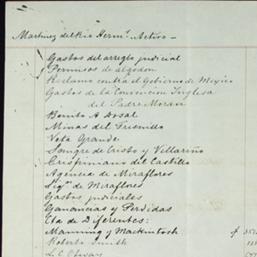 Martinez del Rio Herms. Activo -
Gastos del arreglo judicial
Permisos de algodon
Reclamo contra el Gobierno de Mexico
Gastos de la Convencion Inglesa
del Padre Moran
Benito A Dosal
Minas del Fresnillo
Veta Grande
Sangre de Cristo y Villariño
Crispiniano del Castillo
Agencia de Miraflores
Miraflores
Gastos judiciales
Ganancias y Perdidas
Cta de Diferentes:
Manning y Mackintosh
Roberto Smith